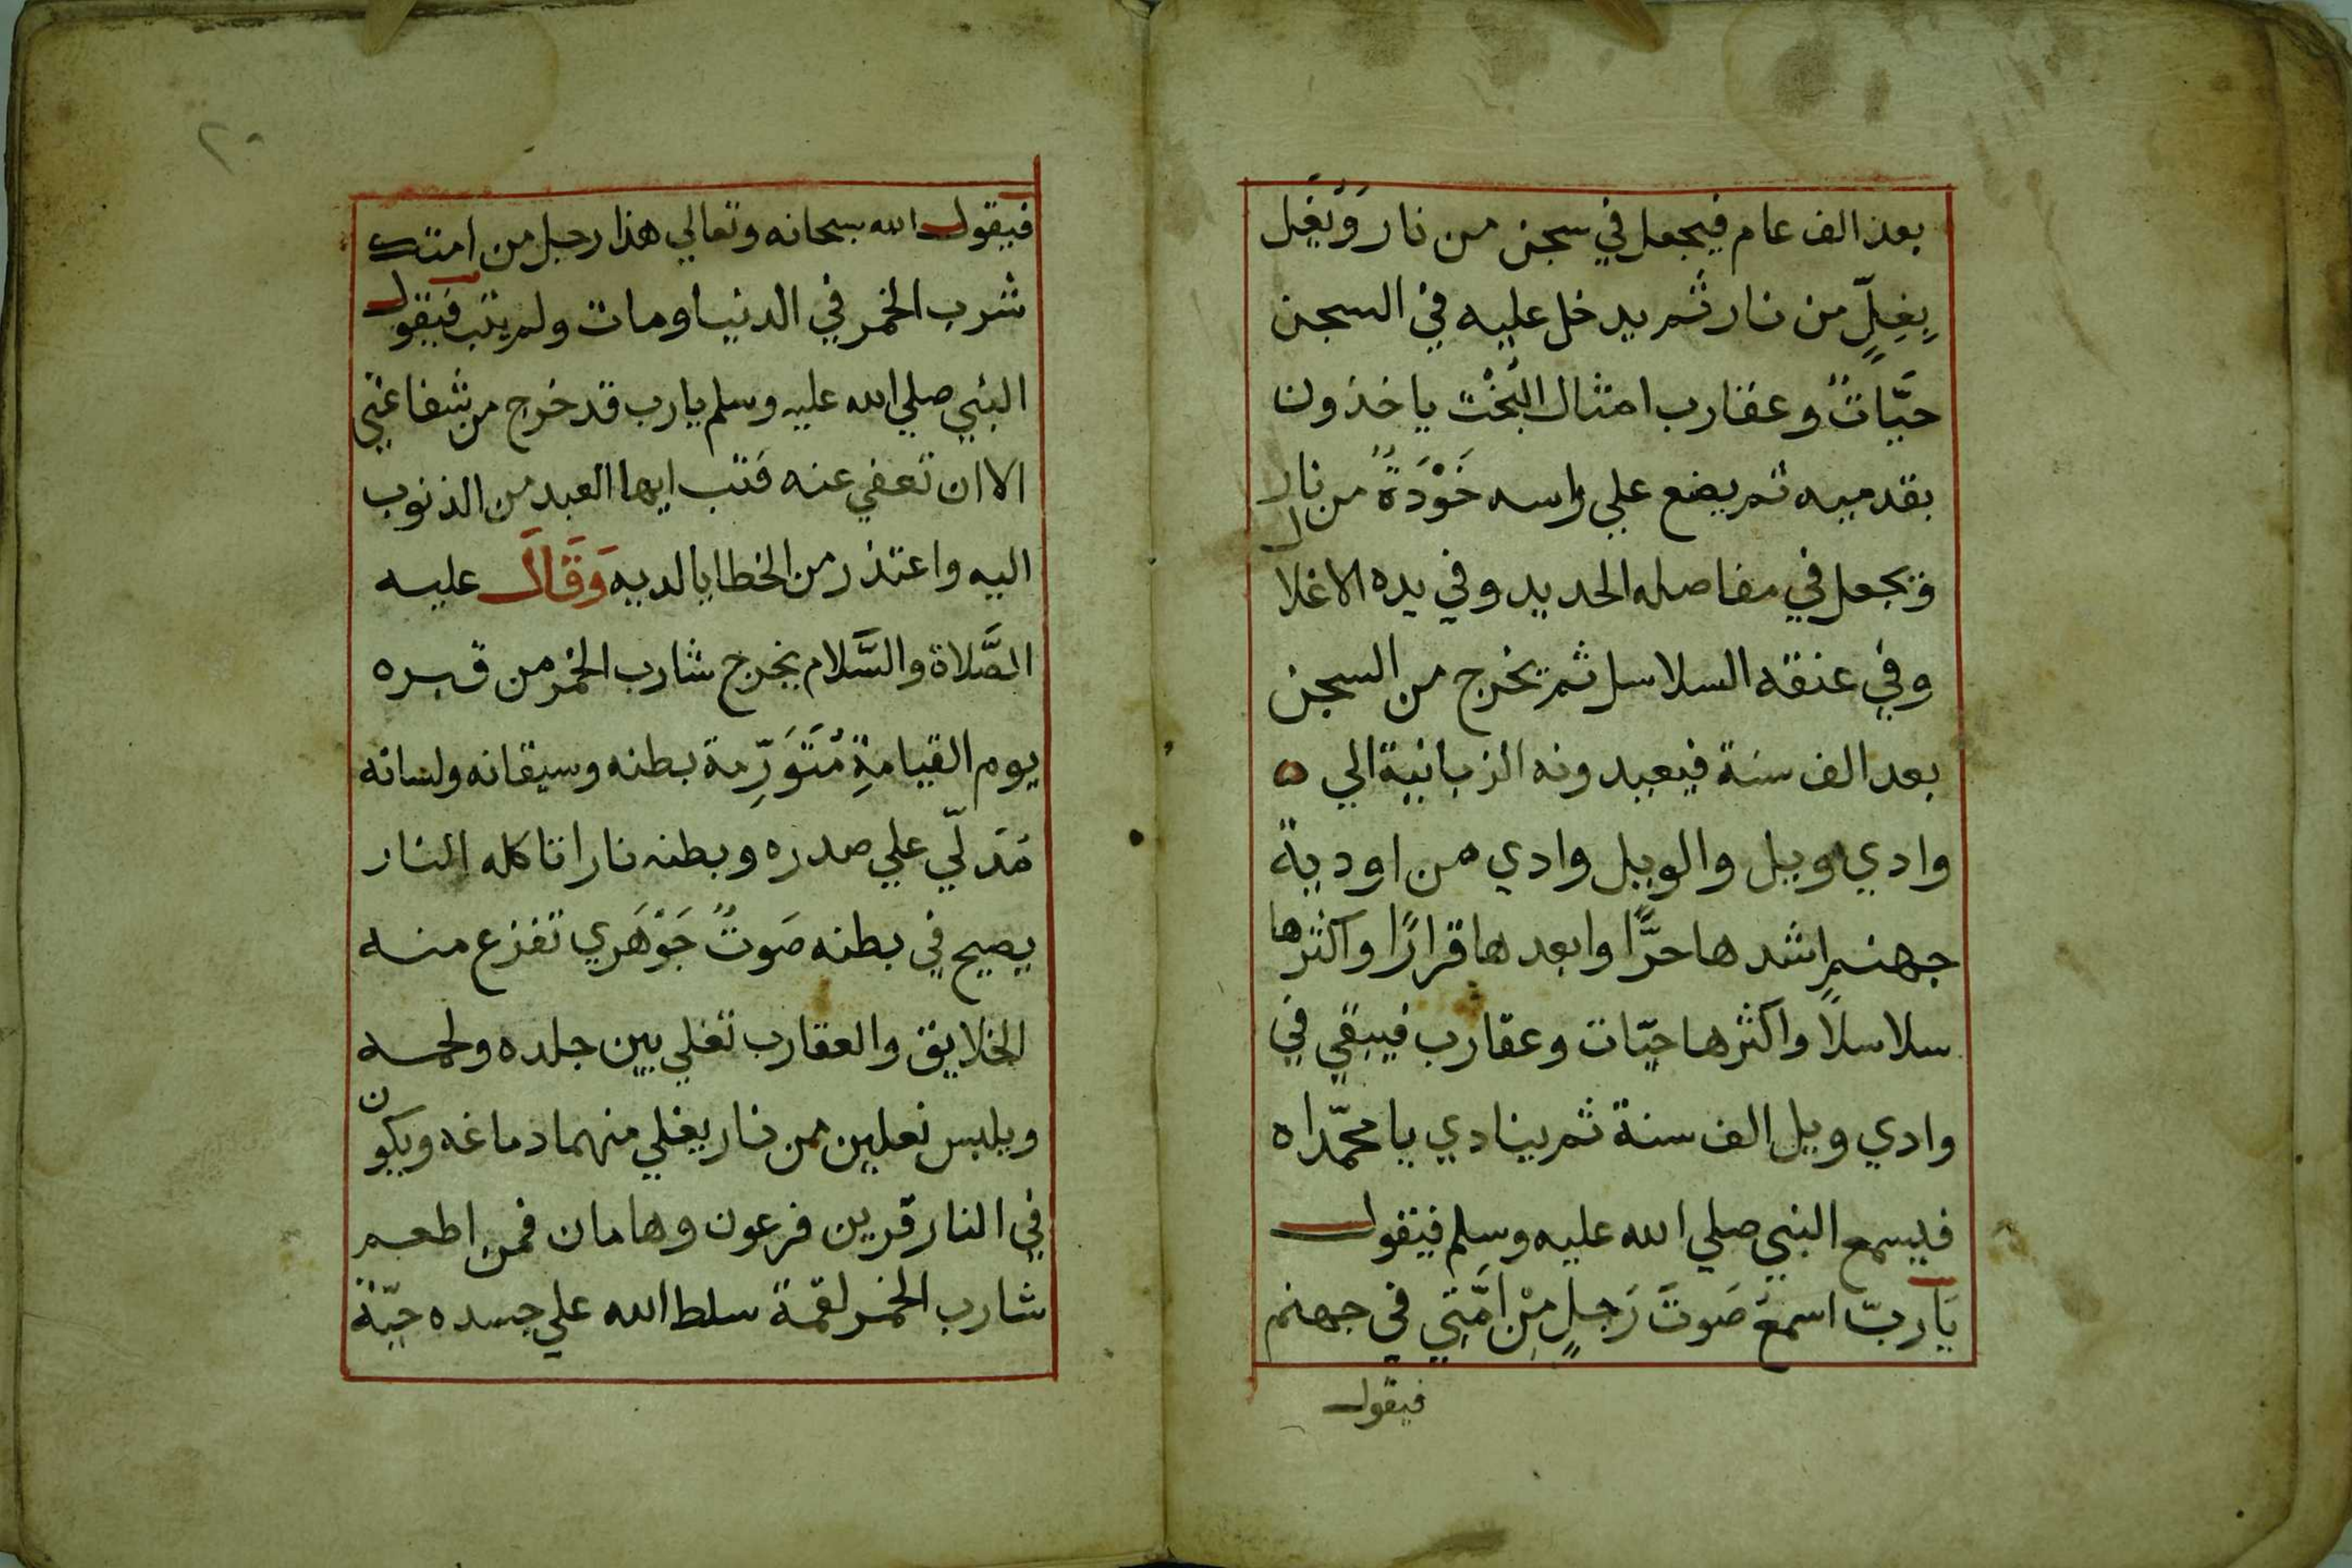 بعد الف عام فيجعل في سجن من نار وَيُغِل
بِغِلٍّ من نار ثم يدخل عليه في السجن
حيَّاتٌ وعقارب امثال البُخْت ياخذون
بقدميه ثم يضع علي راسه خَوْدَةٌ من نار
ويجعل في مفاصله الحديد وفي يده الاغلال
وفي عنقه السلاسل ثم يخرج من السجن
بعد الف سنة فيعيدونه الزبانية الي ه
وادي ويل والويل وادي من اودية
جهنم اشدها حرًّا وابعدها قرارًا واكثرها
سلاسلاً واكثرها حيّات وعقارب فيبقي في
وادي ويل الف سنة ثم ينادي يا محمّداه
فيسمع النبي صلي الله عليه وسلم فيقول
يَارب اسمعَ صَوتَ رَجلٍ مِنْ امَّتِي في جهنم
فيقول
٢٠
فيقول الله سبحانه وتعالي هذا رجل من امتك
شرب الخمر في الدنيا ومات ولم يتب فيقول
النبي صلي الله عليه وسلم يا رب قد خرج من شفاعتي
الا ان تعفي عنه فَتب ايها العبد من الذنوب
اليه واعتذر من الخطايا لديه وَقَالَ عليه
الصَّلاة والسَّلام يخرج شارب الخمر من قبره
يوم القيامةِ مُتَوَرِّمة بطنه وسيقانه ولسانه
مَدَلّي علي صدره وبطنه نارا تاكله النار
يصيح في بطنه صَوتٌ جَوْهَرِي تفزع منه
الخلايق والعقارب تغلي بين جلده ولحمه
ويلبس نعلين من نار يغلي منهما دماغه ويكون
في النار قرين فرعون وهامان فمن اطعم
شارب الخمر لقمة سلط الله علي جسده حيّة